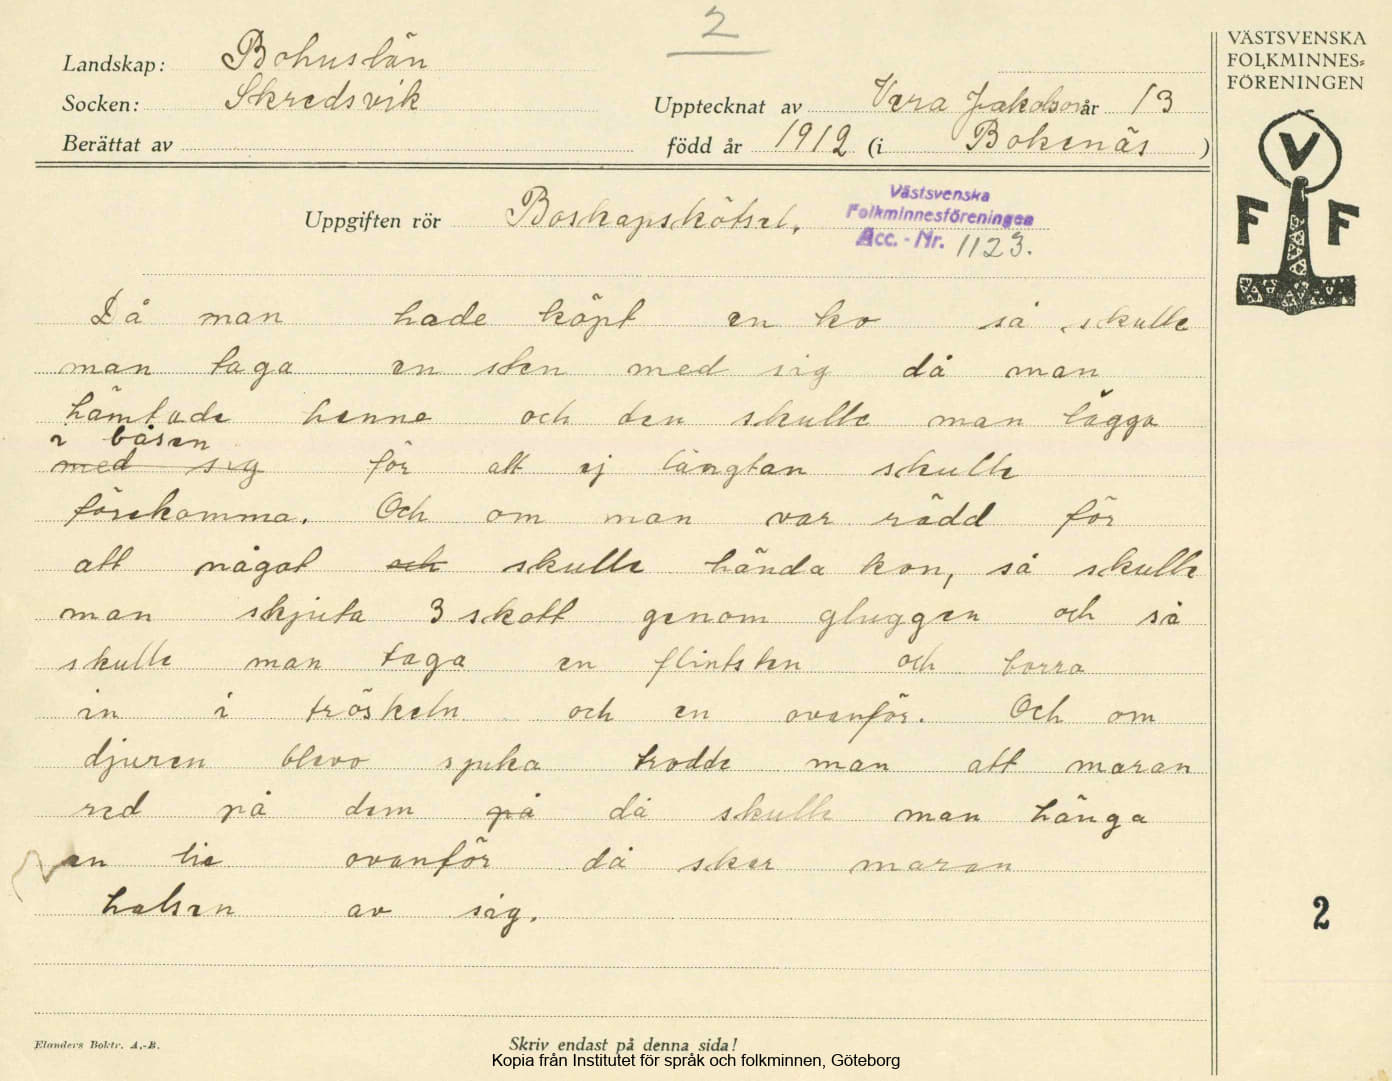 2
Landskap: Bohuslän
Socken: Skredsvik
Upptecknat av Vera Jakobson år 13
Berättat av
född år 1912 (i Bokenäs)
VÄSTSVENSKA
FOLKMINNES=
FÖRENINGEN
V
F F
Uppgiften rör Boskapskötsel.
Västsvenska
Folkminnesföreningen
Acc. - Nr. 1123.
Då man hade köpt en ko så skulle
man taga en sten med sig då man
hämtade henne och den skulle man lägga
i båsen
med sig för att ej längtan skulle
förekomma. Och om man var rädd för
att något och skulle hända kon, så skulle
man skjuta 3 skott genom gluggen och så
skulle man taga en flintsten och borra
in i tröskeln och en ovanför. Och om
djuren blevo sjuka trodde man att maran
red på dem på då skulle man hänga
en lie ovanför då sker maran
halsen av sig.
2
Elanders Boktr. A.-B.
Skriv endast på denna sida!
Kopia från Institutet för språk och folkminnen, Göteborg